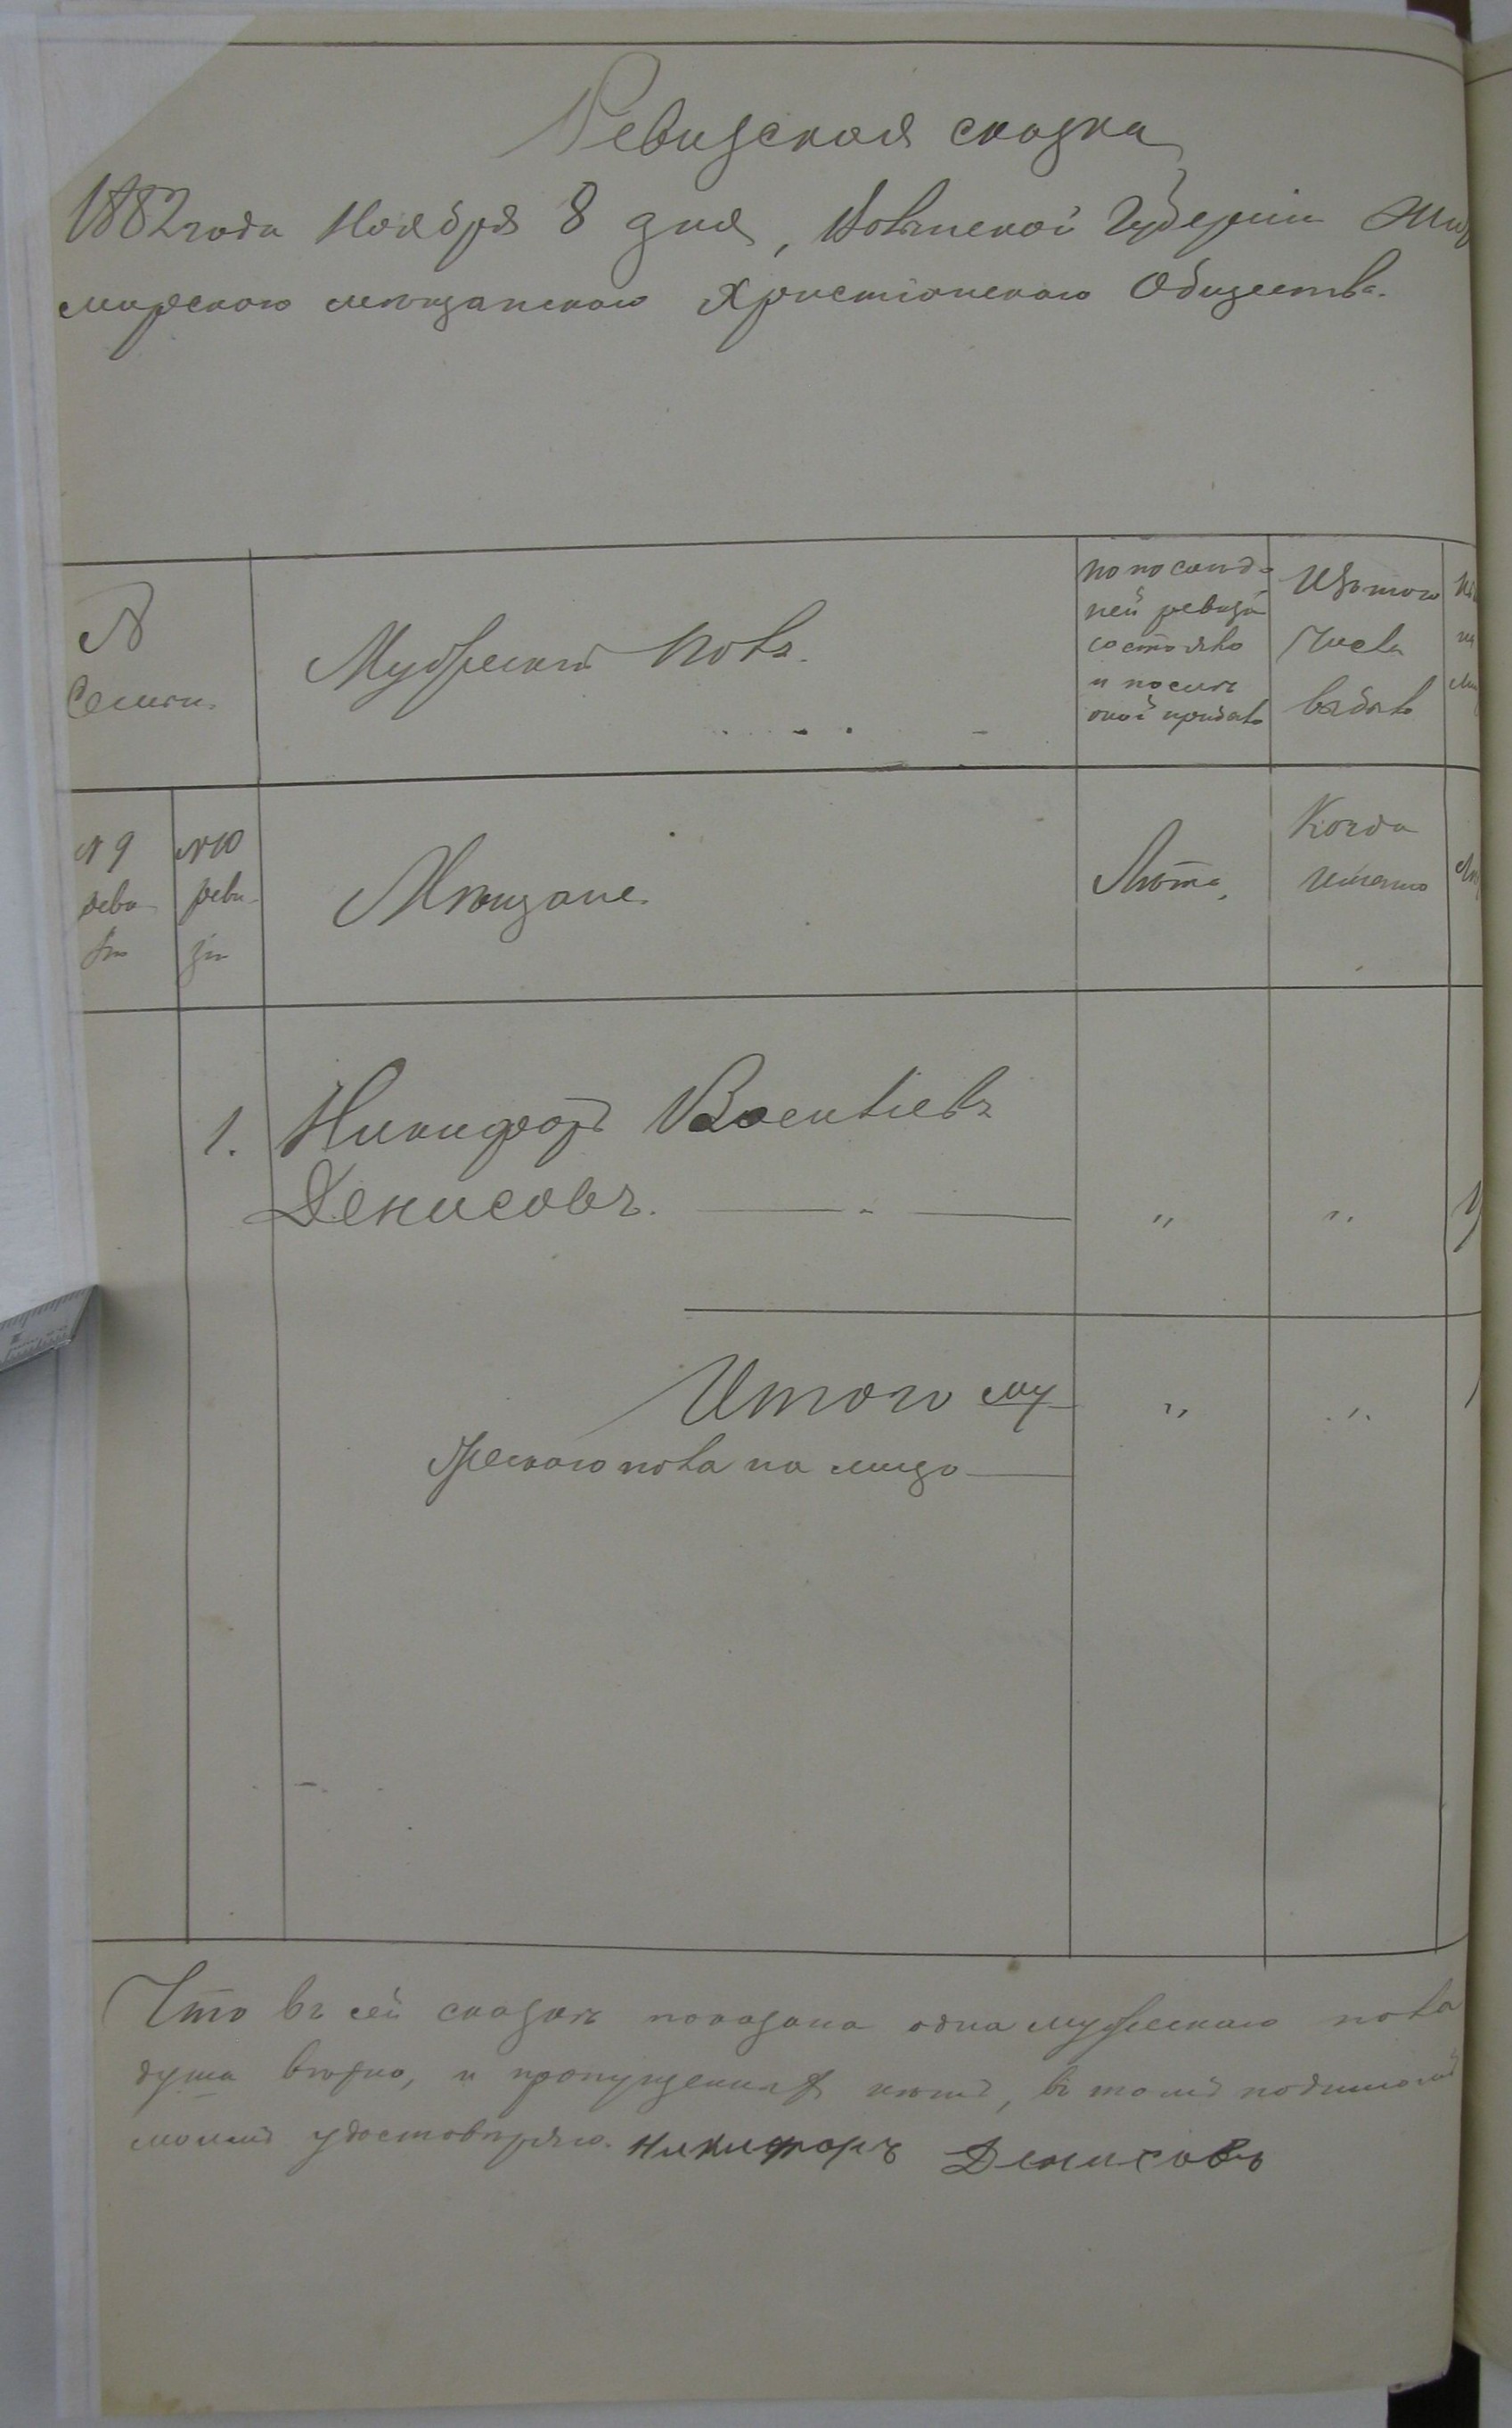 Ревизская сказка
1882 года Ноября 8 дня, Волынской Губерніи Жито
мирского мѣщанского Христіанского Общества.
№
Семьи.
Мужескій полъ.
По послѣд-
ней ревизіи
состояло
и послѣ
оной прибыло
Изъ того
числа
выбыло
№ 9
реви-
зіи
№ 10
реви-
зіи
Мѣщане.
Лѣта.
Когда
именно
1. Никифоръ Васильевъ
Денисовъ. — " — " "
Итого му- " "
жескаго пола на лицо —
Что въ сей сказкѣ показана одна мужескаго пола
душа вѣрно, и пропущенныхъ нѣтъ, въ томъ подписомъ
моимъ удостовѣряю. Никифоръ Денисовъ